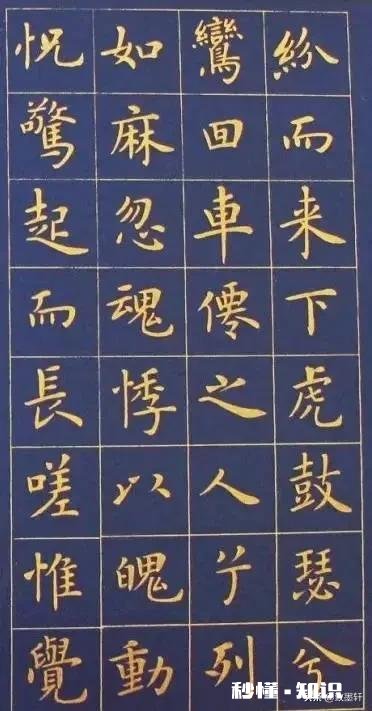 紛而来下虎鼓瑟兮
鸞回車僊之人兮列
如麻忽魂悸以魄動
怳驚起而長嗟惟覺
秒懂·知识
墨轩